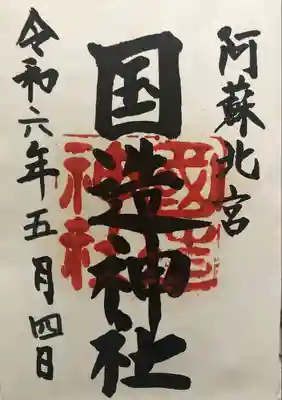 阿蘇北宮
国造神社
令和六年五月四日
國造
神社